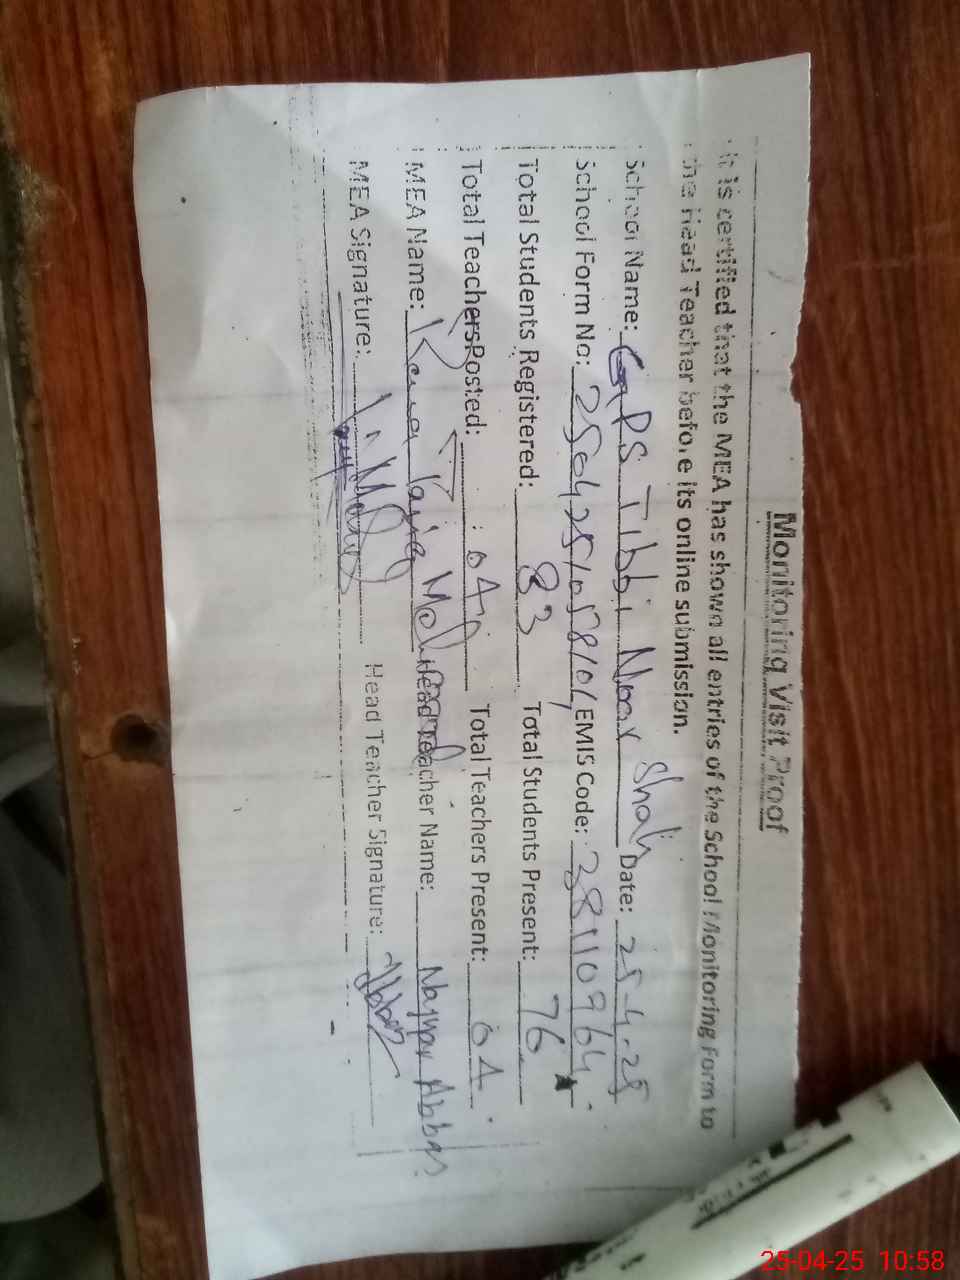 Monitoring Visit Proof
It is certified that the MEA has shown all entries of the School Monitoring Form to
the Head Teacher before its online submission.
School Name: GPS Tibbi Noor Shah Date: 25-4-25
School Form No: EMIS Code: 38110964
Total Students Registered: 83 Total Students Present: 76
Total Teachers Posted: 04 Total Teachers Present: 04
MEA Name: Head Teacher Name: Abbas
MEA Signature: Head Teacher Signature: Abbas
25-04-25 10:58